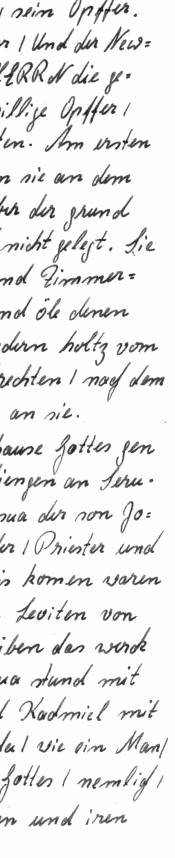 sein Opffer.
r / Und der New=
HERRN die ge=
illige Opffer /
ten. Am ersten
n sie an dem
ber der grund
nicht gelegt. Sie
nd Zimmer=
nd öle denen
dern holtz vom
rechten / nach dem
an sie.
hause Gottes gen
iengen an Seru.
sua der son Jo=
er / Priester und
is komen waren
Leviten von
iben das werck
ua stund mit
d Kadmiel mit
da / wie ein Man /
Gottes / nemlig /
n und iren